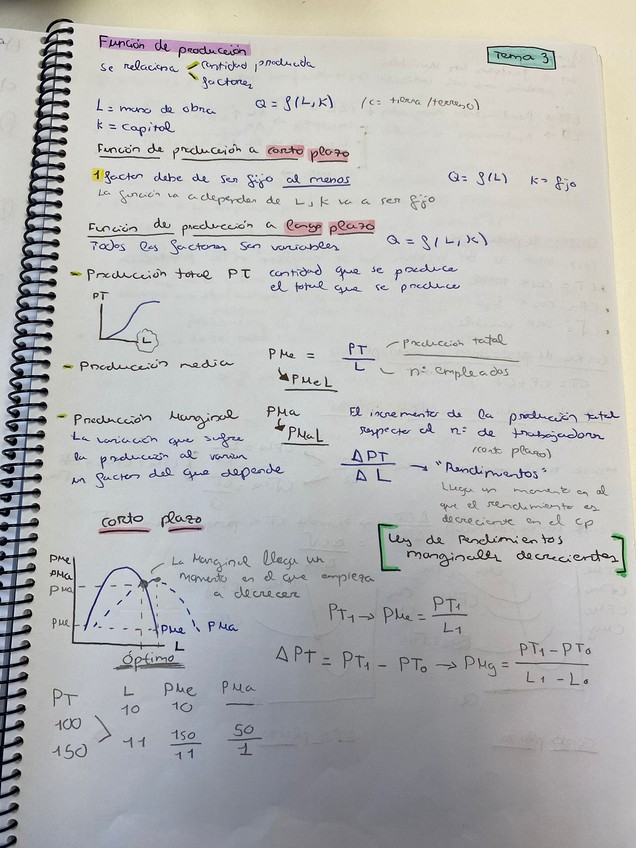 Función de producción
Tema 3
se relaciona cantidad producida
factores
L = mano de obra Q = f(L, K) (c = tierra/terreno)
K = capital
Función de producción a corto plazo
1 factor debe de ser fijo al menos Q = f(L) K = fijo
La función va a depender de L, K va a ser fijo
Función de producción a largo plazo
Todos los factores son variables Q = f(L, K)
- Producción total PT cantidad que se produce
el total que se produce
PT
L
- Producción media PMe = PT / L producción total
nº empleados
PMeL
- Producción Marginal PMa El incremento de la produción total
La variación que sufre PMaL respecto el nº de trabajadores
la produción al variar (corto plazo)
un factor del que depende ΔPT / ΔL → "Rendimientos"
Llega un momento en el
que el rendimiento es
decreciente en el cp
corto plazo
[Ley de Rendimientos
marginales decrecientes]
PMe
PMa
PMa
PMe
La Marginal llega un
momento en el que empieza
a decrecer
PMe PMa
L
Óptimo
PT1 → PMe = PT1 / L1
ΔPT = PT1 - PT0 → PMg = PT1 - PT0 / L1 - L0
PT L PMe PMa
100 10 10 —
150 11 150/11 50/1